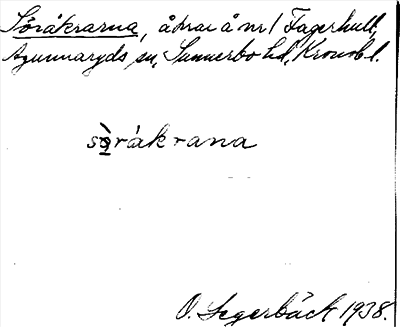 Söråkrarna, åkrar å nr 1 Fagerhult,
Agunnaryds sn, Sunnerbo hd, Kronob. l.
sò̱råkrana
O. Segerbäck 1938.